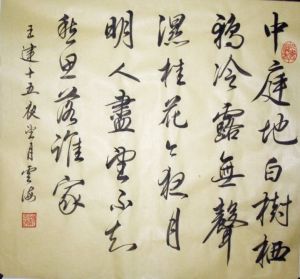 中庭地白樹栖
鴉冷露無聲
濕桂花今夜月
明人盡望不知
愁思落誰家
王建十五夜望月雲海